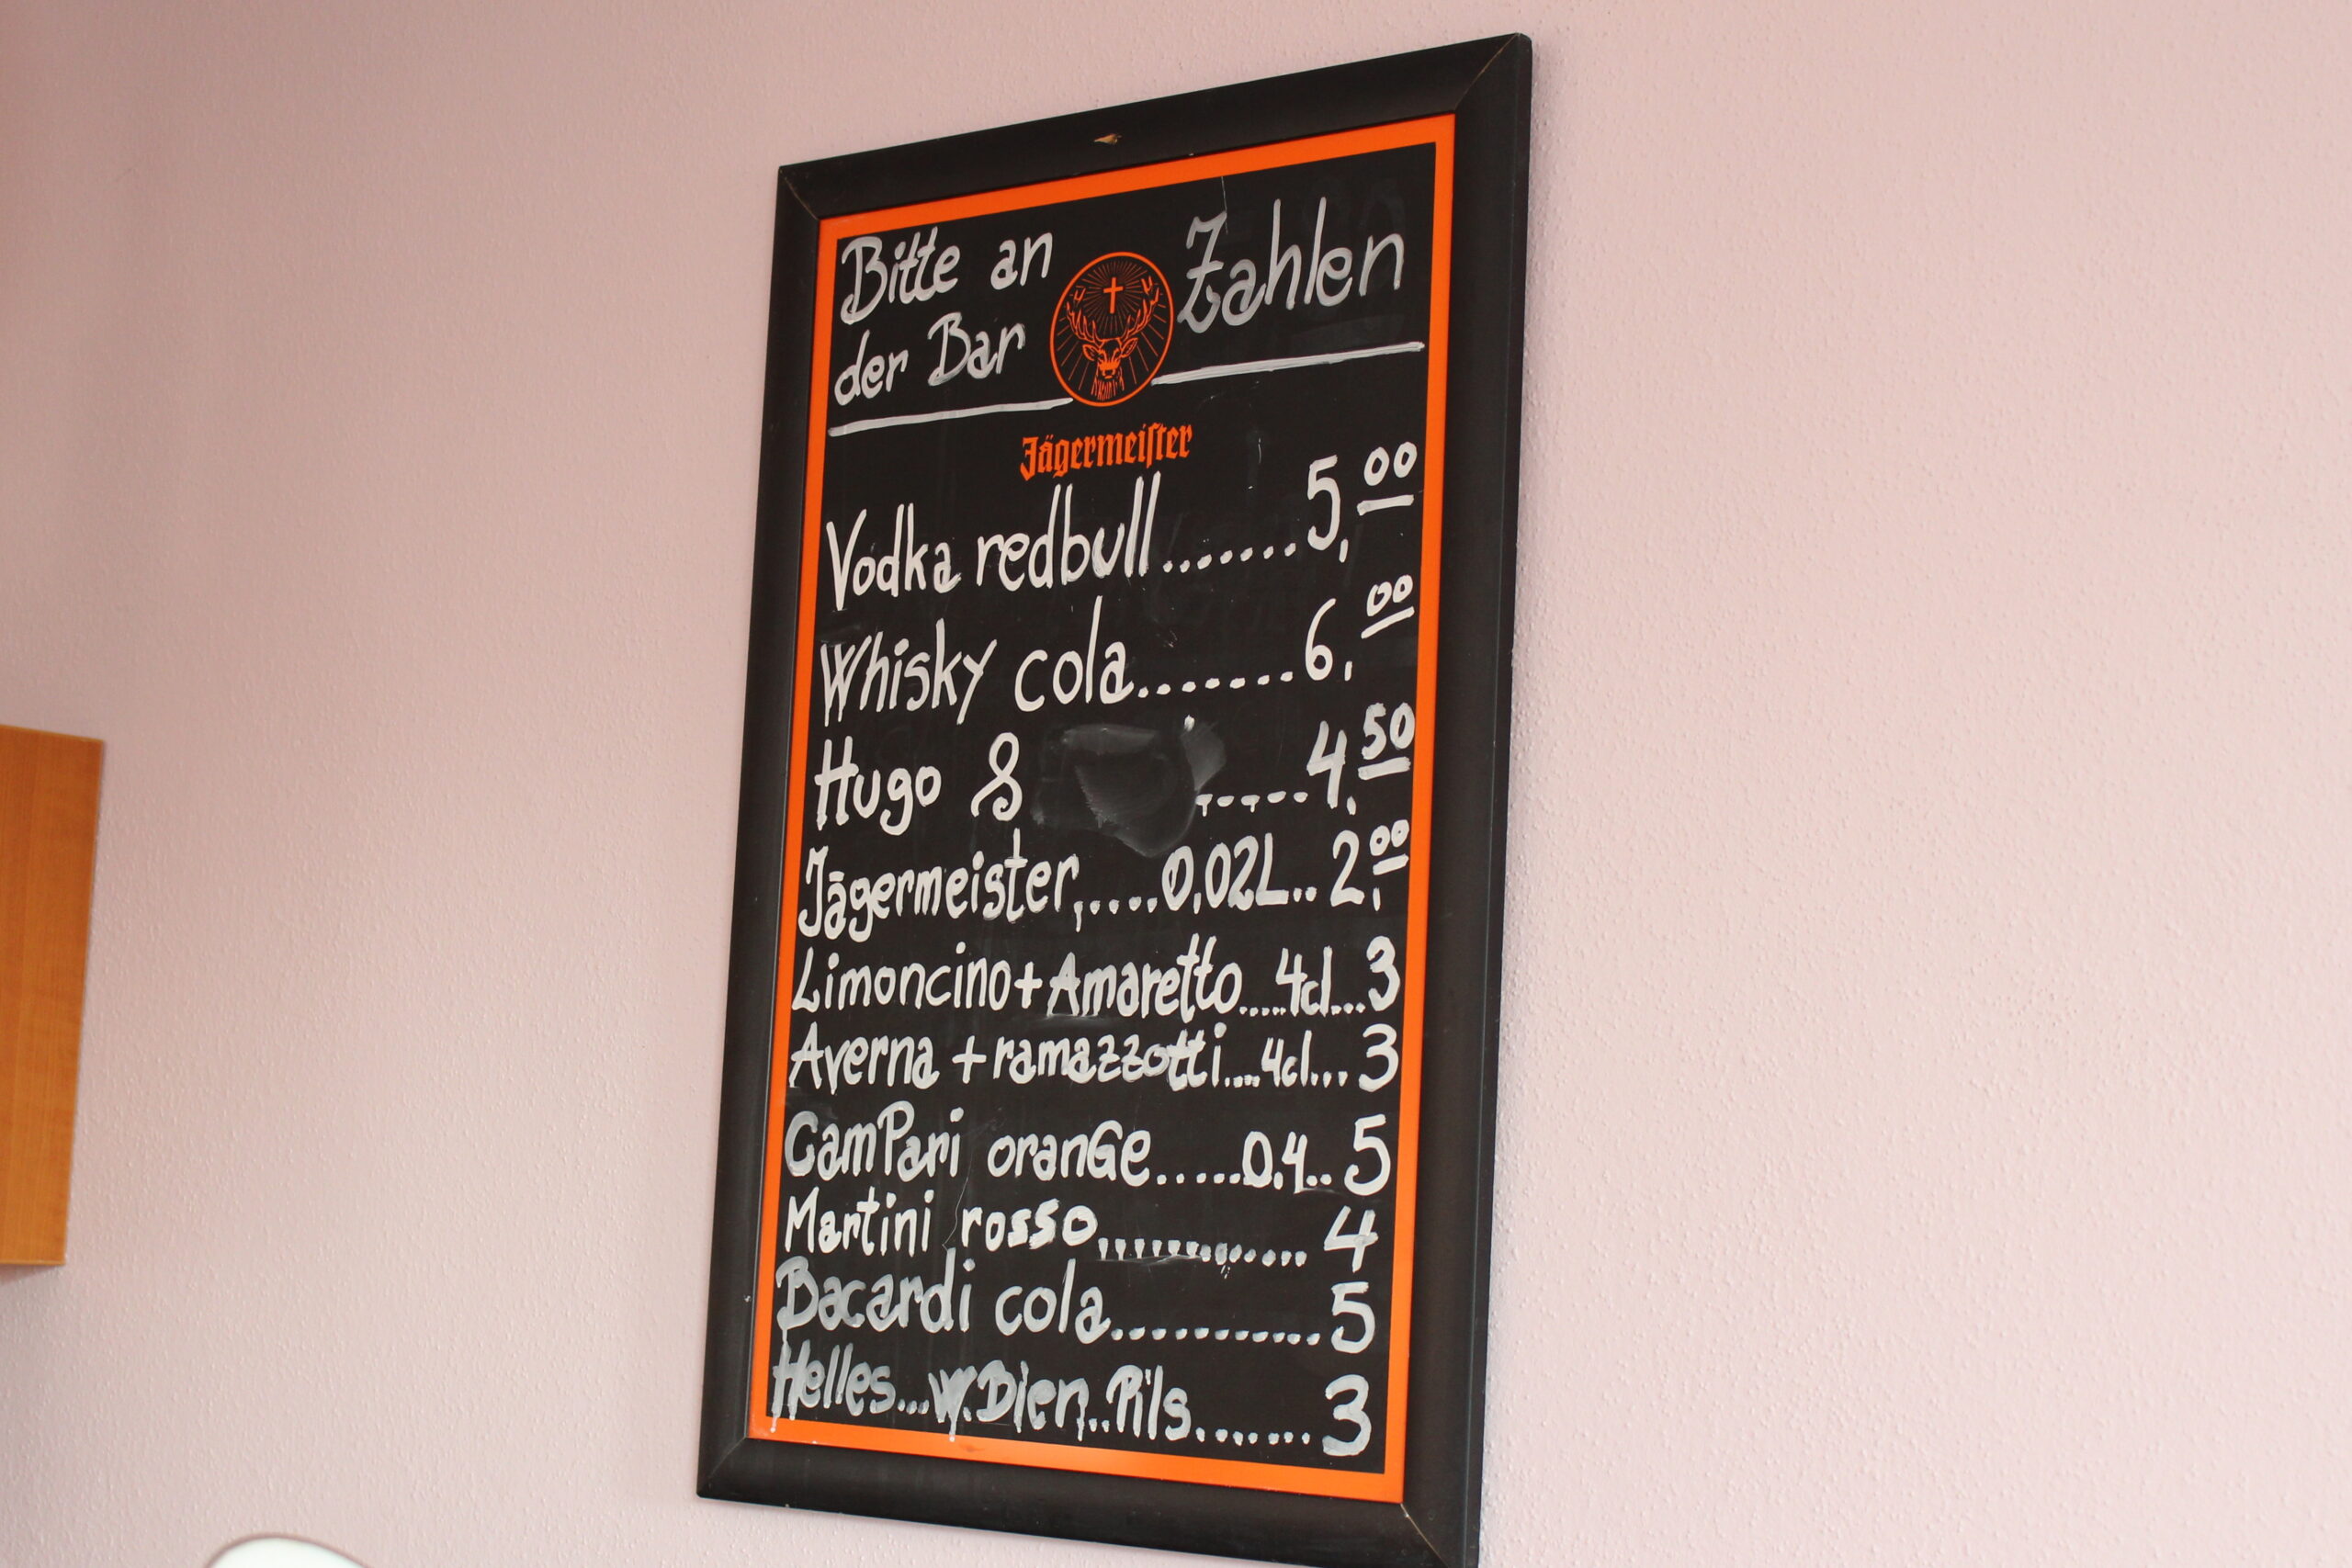 Bitte an
der Bar
Zahlen
Jägermeister
Vodka redbull.......5,00
Whisky cola.......6,00
Hugo & ......4,50
Jägermeister,....0,02L..2,00
Limoncino+Amaretto.....4cl...3
Averna + ramazzotti....4cl...3
CamPari oranGe.....0,4..5
Martini rosso.............4
Bacardi cola...........5
Helles...W.Bier..Pils.......3